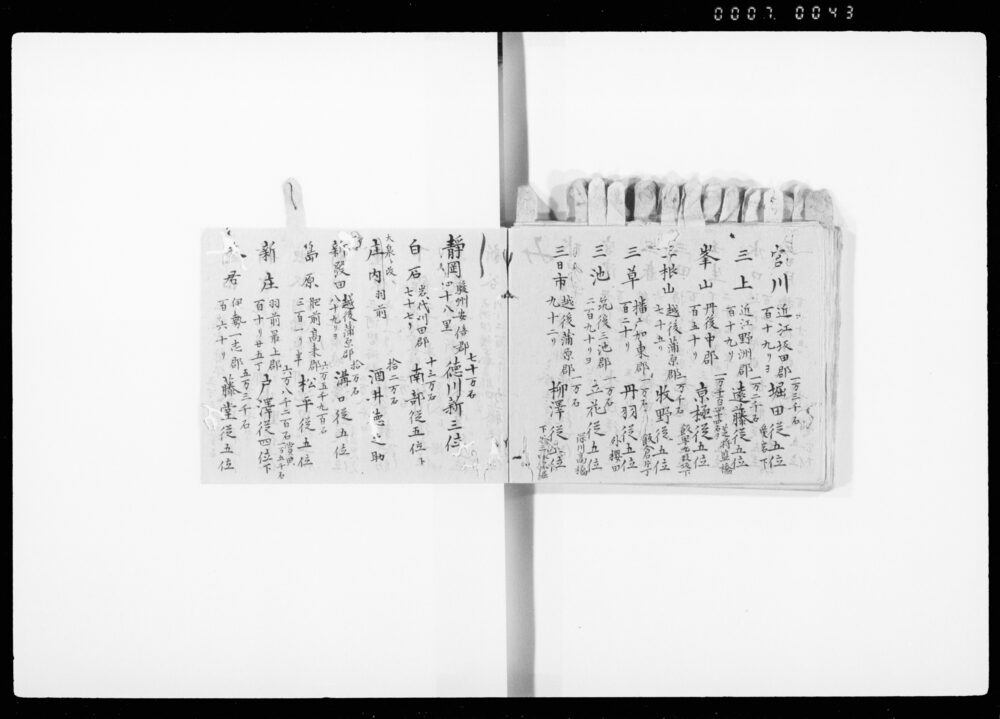 0007 0043
宮川 近江坂田郡 一万三千石 堀田従五位
百十九リヨ 愛宕下
三上 近江野洲郡 一万二千石 遠藤従五位
百十九リ
峯山 丹後中郡 京極従五位
百五十リ
三根山 越後蒲原郡 一万千石 牧野従五位
七十五リ
三草 播戸加東郡 一万石 丹羽従五位
百二十リ 外櫻田
三池 筑後三池郡 一万石 立花従五位
二百九十リヨ 深川高橋
三日市 越後蒲原郡 一万石 柳澤従五位
九十二リ
し
静岡 駿州安倍郡 七十万石 徳川新三位
四十八里
白石 岩代刈田郡 十三万石 南部従五位下
七十七リ
大泉ト改
庄内 羽前 拾二万石 酒井徳之助
新発田 越後蒲原郡 拾万石 溝口従五位
八十九リヨ
島原 肥前高来郡 六万五千九百石 松平従五位
三百一リ半
新庄 羽前最上郡 六万八千二百石 戸澤従四位下
百十リ廿五丁
久居 伊勢一志郡 五万三千石 藤堂従五位
百六十リ